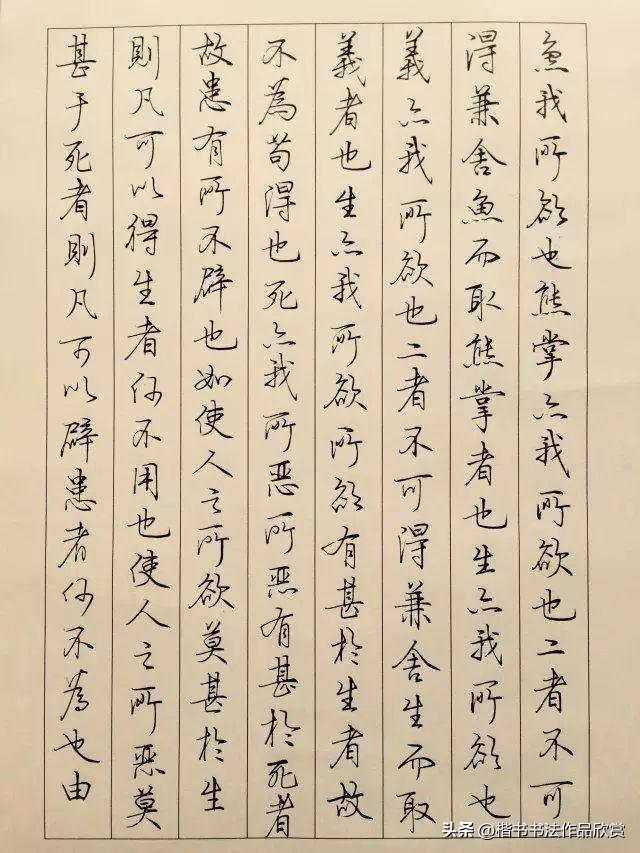 魚我所欲也熊掌亦我所欲也二者不可
得兼舍魚而取熊掌者也生亦我所欲也
義亦我所欲也二者不可得兼舍生而取
義者也生亦我所欲所欲有甚於生者故
不為苟得也死亦我所惡所惡有甚於死者
故患有所不辟也如使人之所欲莫甚於生
則凡可以得生者何不用也使人之所惡莫
甚于死者則凡可以辟患者何不為也由
头条 @楷书书法作品欣赏